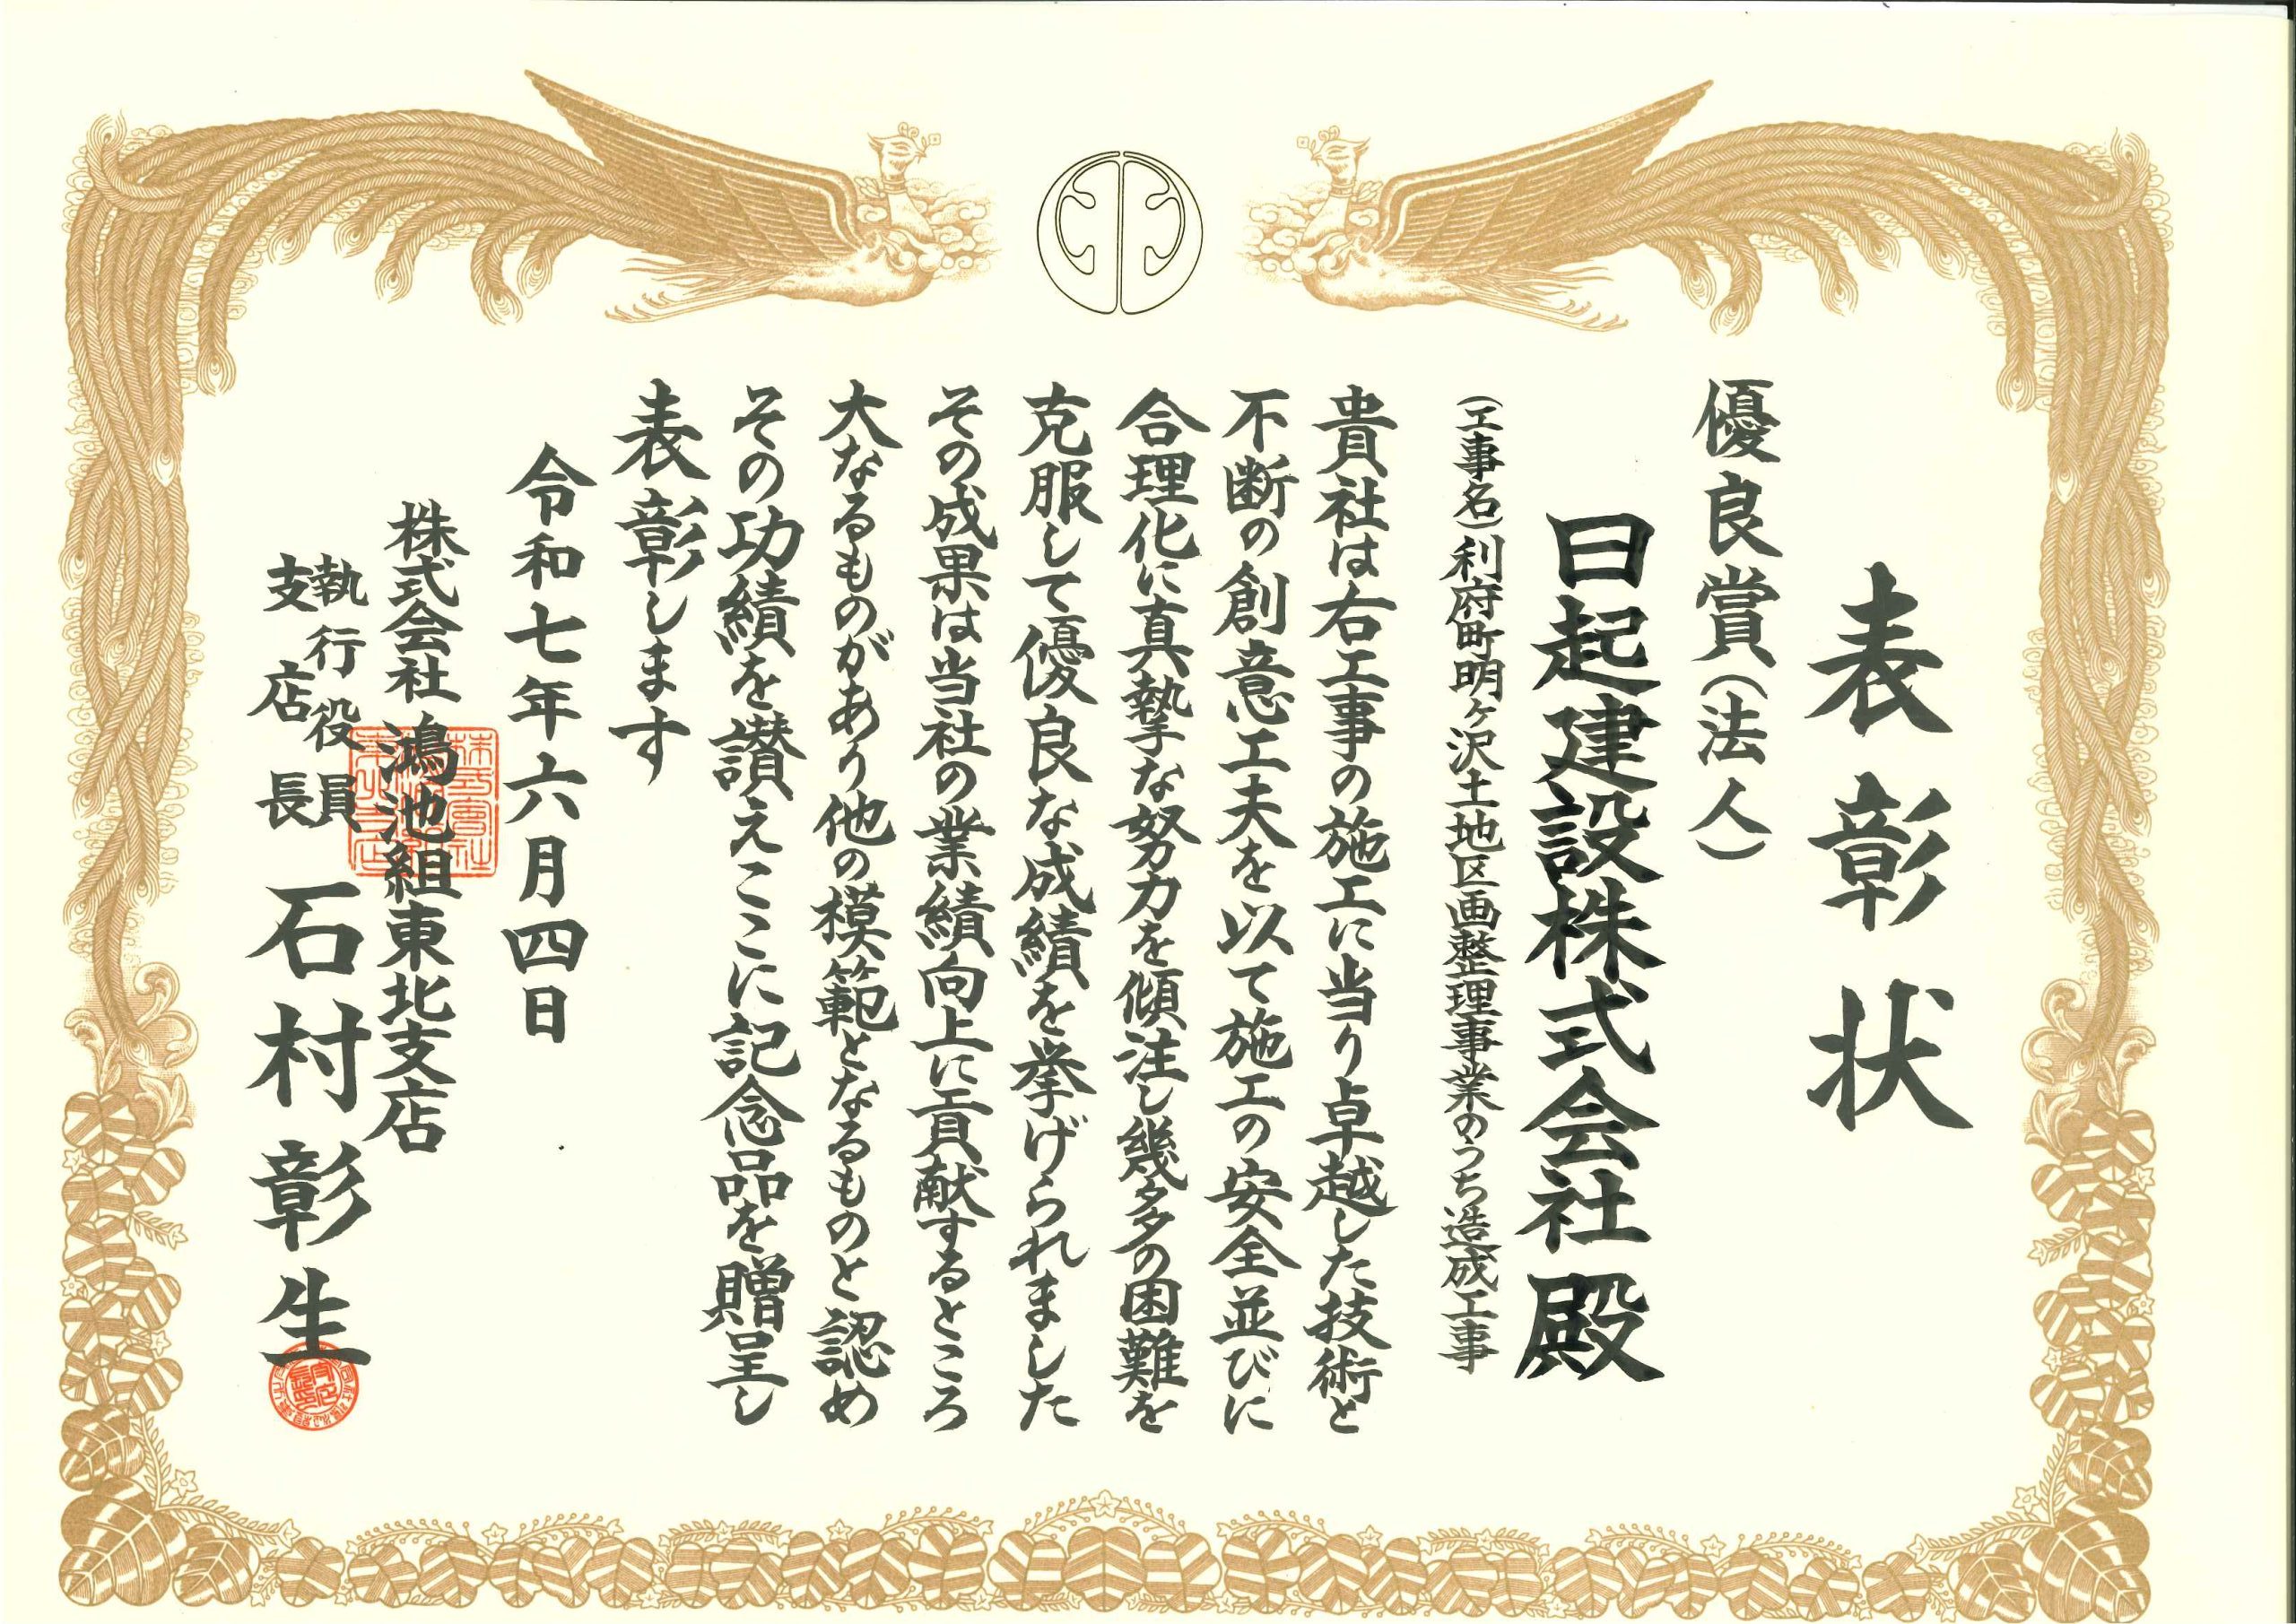 表彰状
優良賞(法人)
日起建設株式会社殿
(工事名)利府町明ヶ沢土地区画整理事業のうち造成工事
貴社は右工事の施工に当り卓越した技術と
不断の創意工夫を以て施工の安全並びに
合理化に真摯な努力を傾注し幾多の困難を
克服して優良な成績を挙げられました
その成果は当社の業績向上に貢献するところ
大なるものがあり他の模範となるものと認め
その功績を讃えここに記念品を贈呈し
表彰します
令和七年六月四日
株式会社鴻池組東北支店
執行役員
支店長
石村彰生